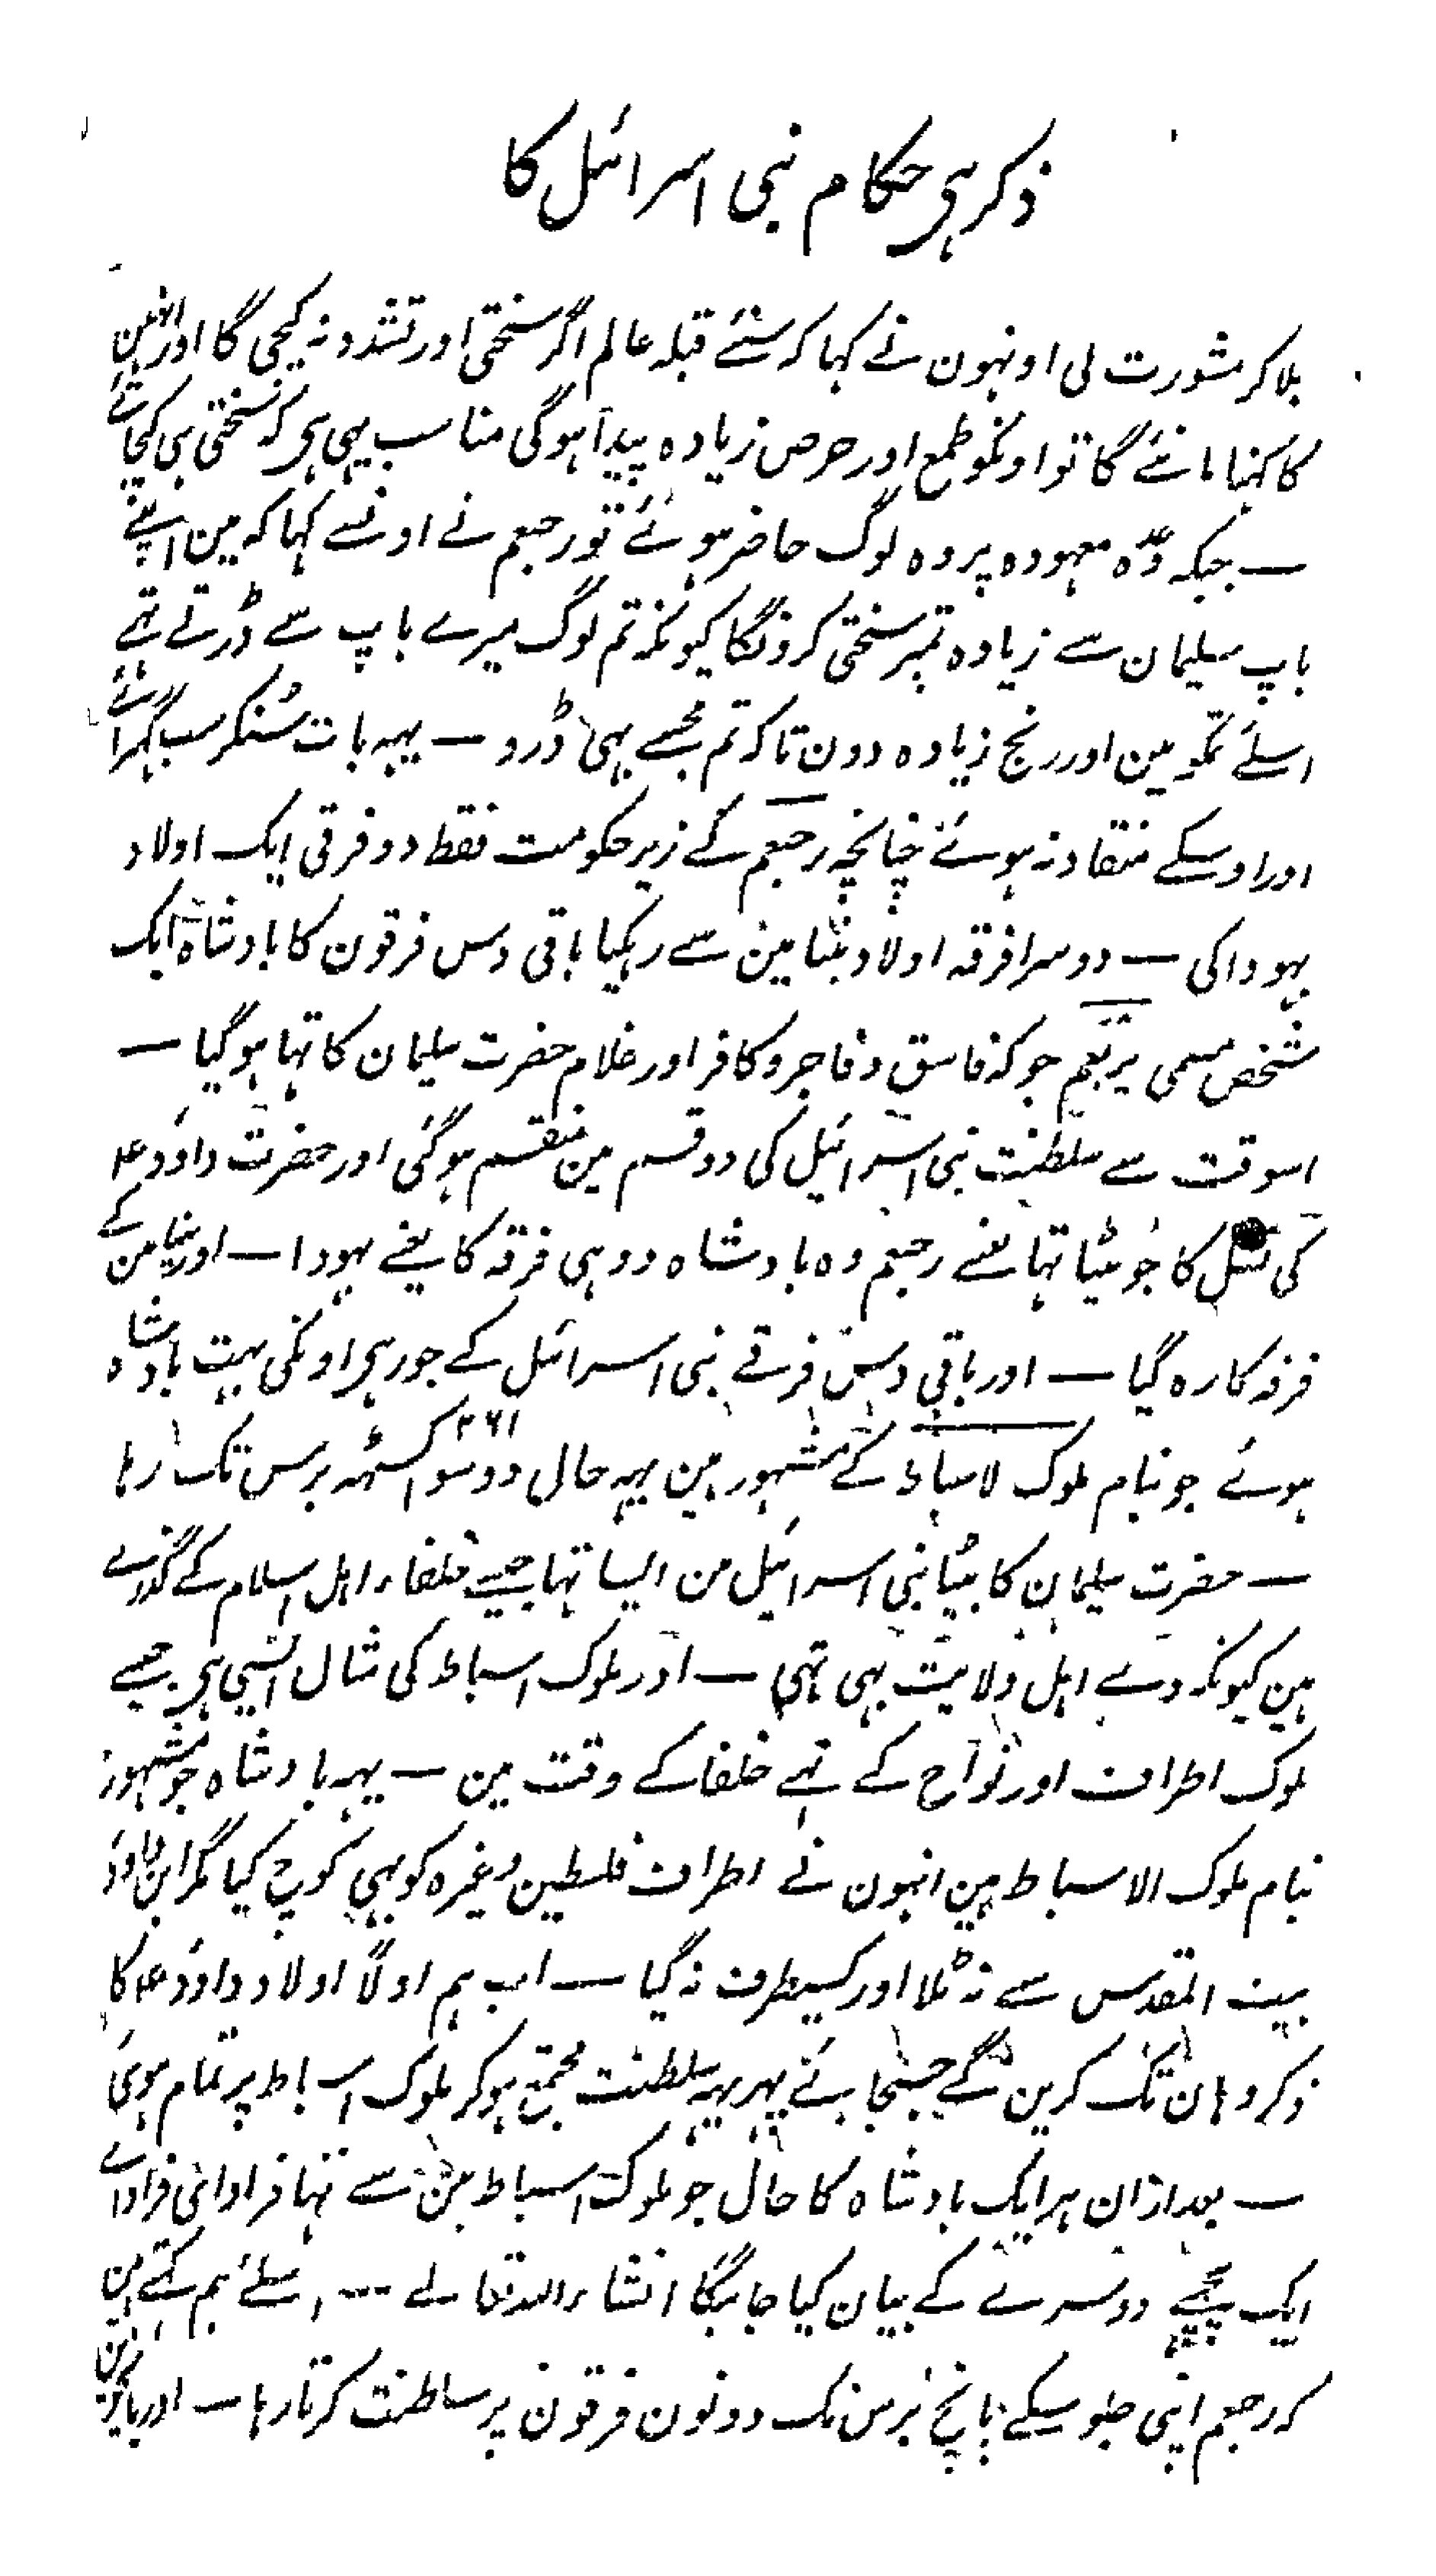 ذکر ہی حکام بنی اسرائیل کا
بلا کر مشورت لی اونہون نے کہا کہ سنئے قبلہ عالم اگر سختی اور تشدد نہ کیجی گا اور انہین
کا کہنا مانئے گا تو اونکو طمع اور حرص زیادہ پیدا ہوگی مناسب یہی ہی کہ سختی ہی کیجائے
— جبکہ وعدہ معہودہ پر وہ لوگ حاضر ہوئے تو رحبعم نے اونسے کہا کہ مین اپنے
باپ سلیمان سے زیادہ تمپر سختی کرونگا کیونکہ تم لوگ میرے باپ سے ڈرتے تہے
اسلئے تمکو مین اور رنج زیادہ دون تاکہ تم مجھسے بہی ڈرو — یہہ بات سُنکر سب گہرائے
اور اوسکے منقاد نہ ہوئے چنانچہ رحبعم کے زیر حکومت فقط دو فرقی ایک اولاد
یہودا کی — دوسرا فرقہ اولاد بنیامین سے رہگیا باقی دس فرقون کا بادشاہ ایک
شخص مسمی یربعم جو کہ فاسق و فاجر و کافر اور غلام حضرت سلیمان کا تہا ہوگیا —
اسوقت سے سلطنت بنی اسرائیل کی دو قسم مین منقسم ہوگئی اور حضرت داوٗد ع
کی نسل کا جو بیٹا تہا یعنے رحبعم وہ بادشاہ دو ہی فرقہ کا یعنے یہودا — اور بنیامن کے
فرقہ کا رہ گیا — اور باقی دس فرقے بنی اسرائیل کے جو رہی اونکی بہت بادشاہ
ہوئے جو بنام ملوک لاسباط کے مشہور ہین یہہ حال دو سو اکسٹہہ ۲۶۱ برس تک رہا
— حضرت سلیمان کا بیٹا بنی اسرائیل من ایسا تہا جیسے خلفاء اہل اسلام کے گذرے
ہین کیونکہ وے اہل ولایت بہی تہی — اور ملوک اسباط کی مثال ایسی ہی جیسے
ملوک اطراف اور نواح کے تہے خلفا کے وقت مین — یہہ بادشاہ جو مشہور
بنام ملوک الاسباط ہین انہون نے اطراف فلسطین وغیرہ کو بہی کوچ کیا مگر ابن داوٗد
بیت المقدس سے نہ ٹلا اور کسیطرف نہ گیا — اب ہم اولاً اولاد داوٗد ع کا
ذکر وہان تک کرین گے جسجا نے پہر یہہ سلطنت مجتمع ہوکر ملوک اسباط پر تمام ہوئی
— بعد ازان ہر ایک بادشاہ کا حال جو ملوک اسباط مین سے تہا فرادائی فرادائے
ایک پیچہے دوسرے کے بیان کیا جائیگا انشاء اللہ تعالے — اسلئے ہم کہتے ہین
کہ رحبعم اپنی جلوسکے پانچ برس تک دونون فرقون پر سلطنت کرتا رہا — اور